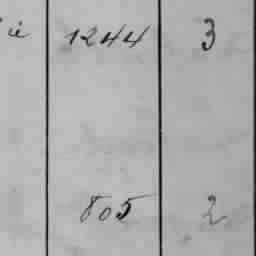 1244 3
805 2